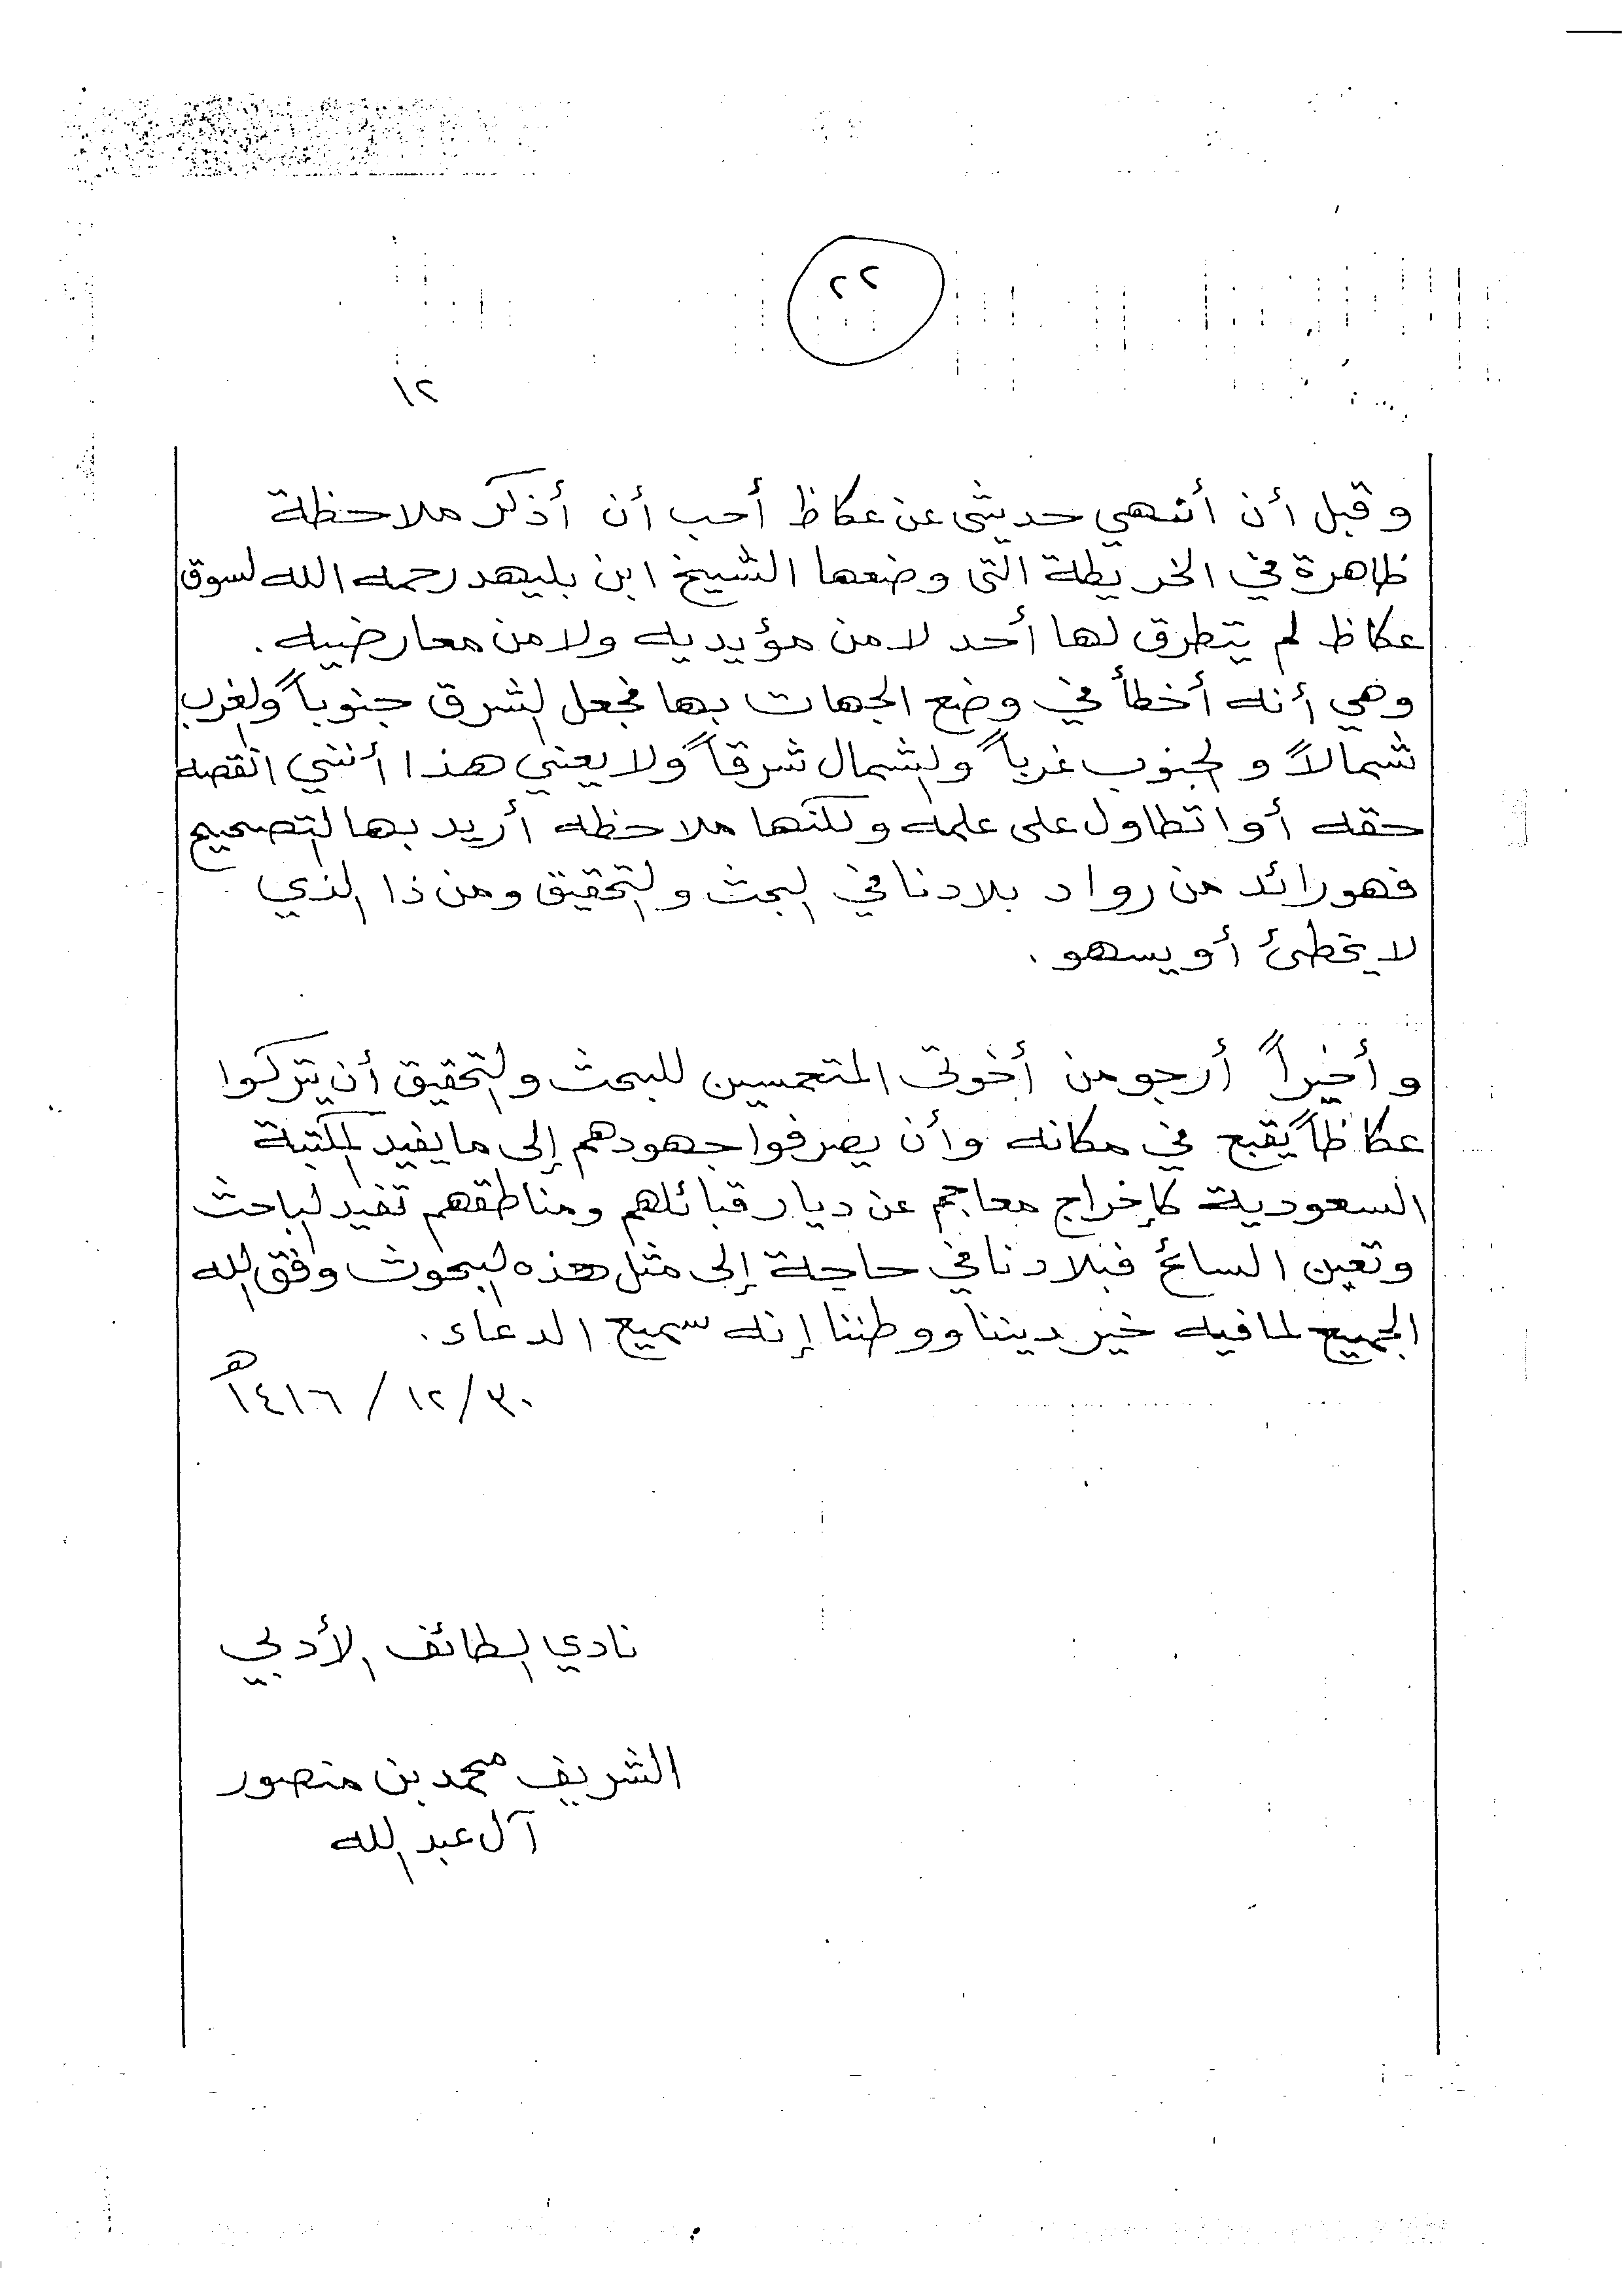 ٢٢
١٢
وقبل أن أنهي حديثى عن عكاظ أحب أن أذكر ملاحظة
ظاهرة في الخريطة التى وضعها الشيخ ابن بليهد رحمه الله لسوق
عكاظ لم يتطرق لها أحد لا من مؤيديه ولا من معارضيه .
وهي أنه أخطأ في وضع الجهات بها فجعل الشرق جنوباً والغرب
شمالاً والجنوب غرباً والشمال شرقاً ولا يعني هذا أنني انقصه
حقه أو اتطاول على علمه ولكنها ملاحظه أريد بها التصحيح
فهو رائد من رواد بلادنا في البحث والتحقيق ومن ذا الذي
لا يخطئ أو يسهو .
وأخيراً أرجو من أخوتى المتحمسين للبحث والتحقيق أن يتركوا
عكاظاً يقبع في مكانه وأن يصرفوا جهودهم إلى ما يفيد المكتبة
السعودية كإخراج معاجم عن ديار قبائلهم ومناطقهم تفيد الباحث
وتعين السائح فبلادنا في حاجة إلى مثل هذه البحوث وفق الله
الجميع لما فيه خير ديننا ووطننا إنه سميع الدعاء .
٣٠/ ١٢/ ١٤١٦هـ
نادي الطائف الأدبي
الشريف محمد بن منصور
آل عبد الله